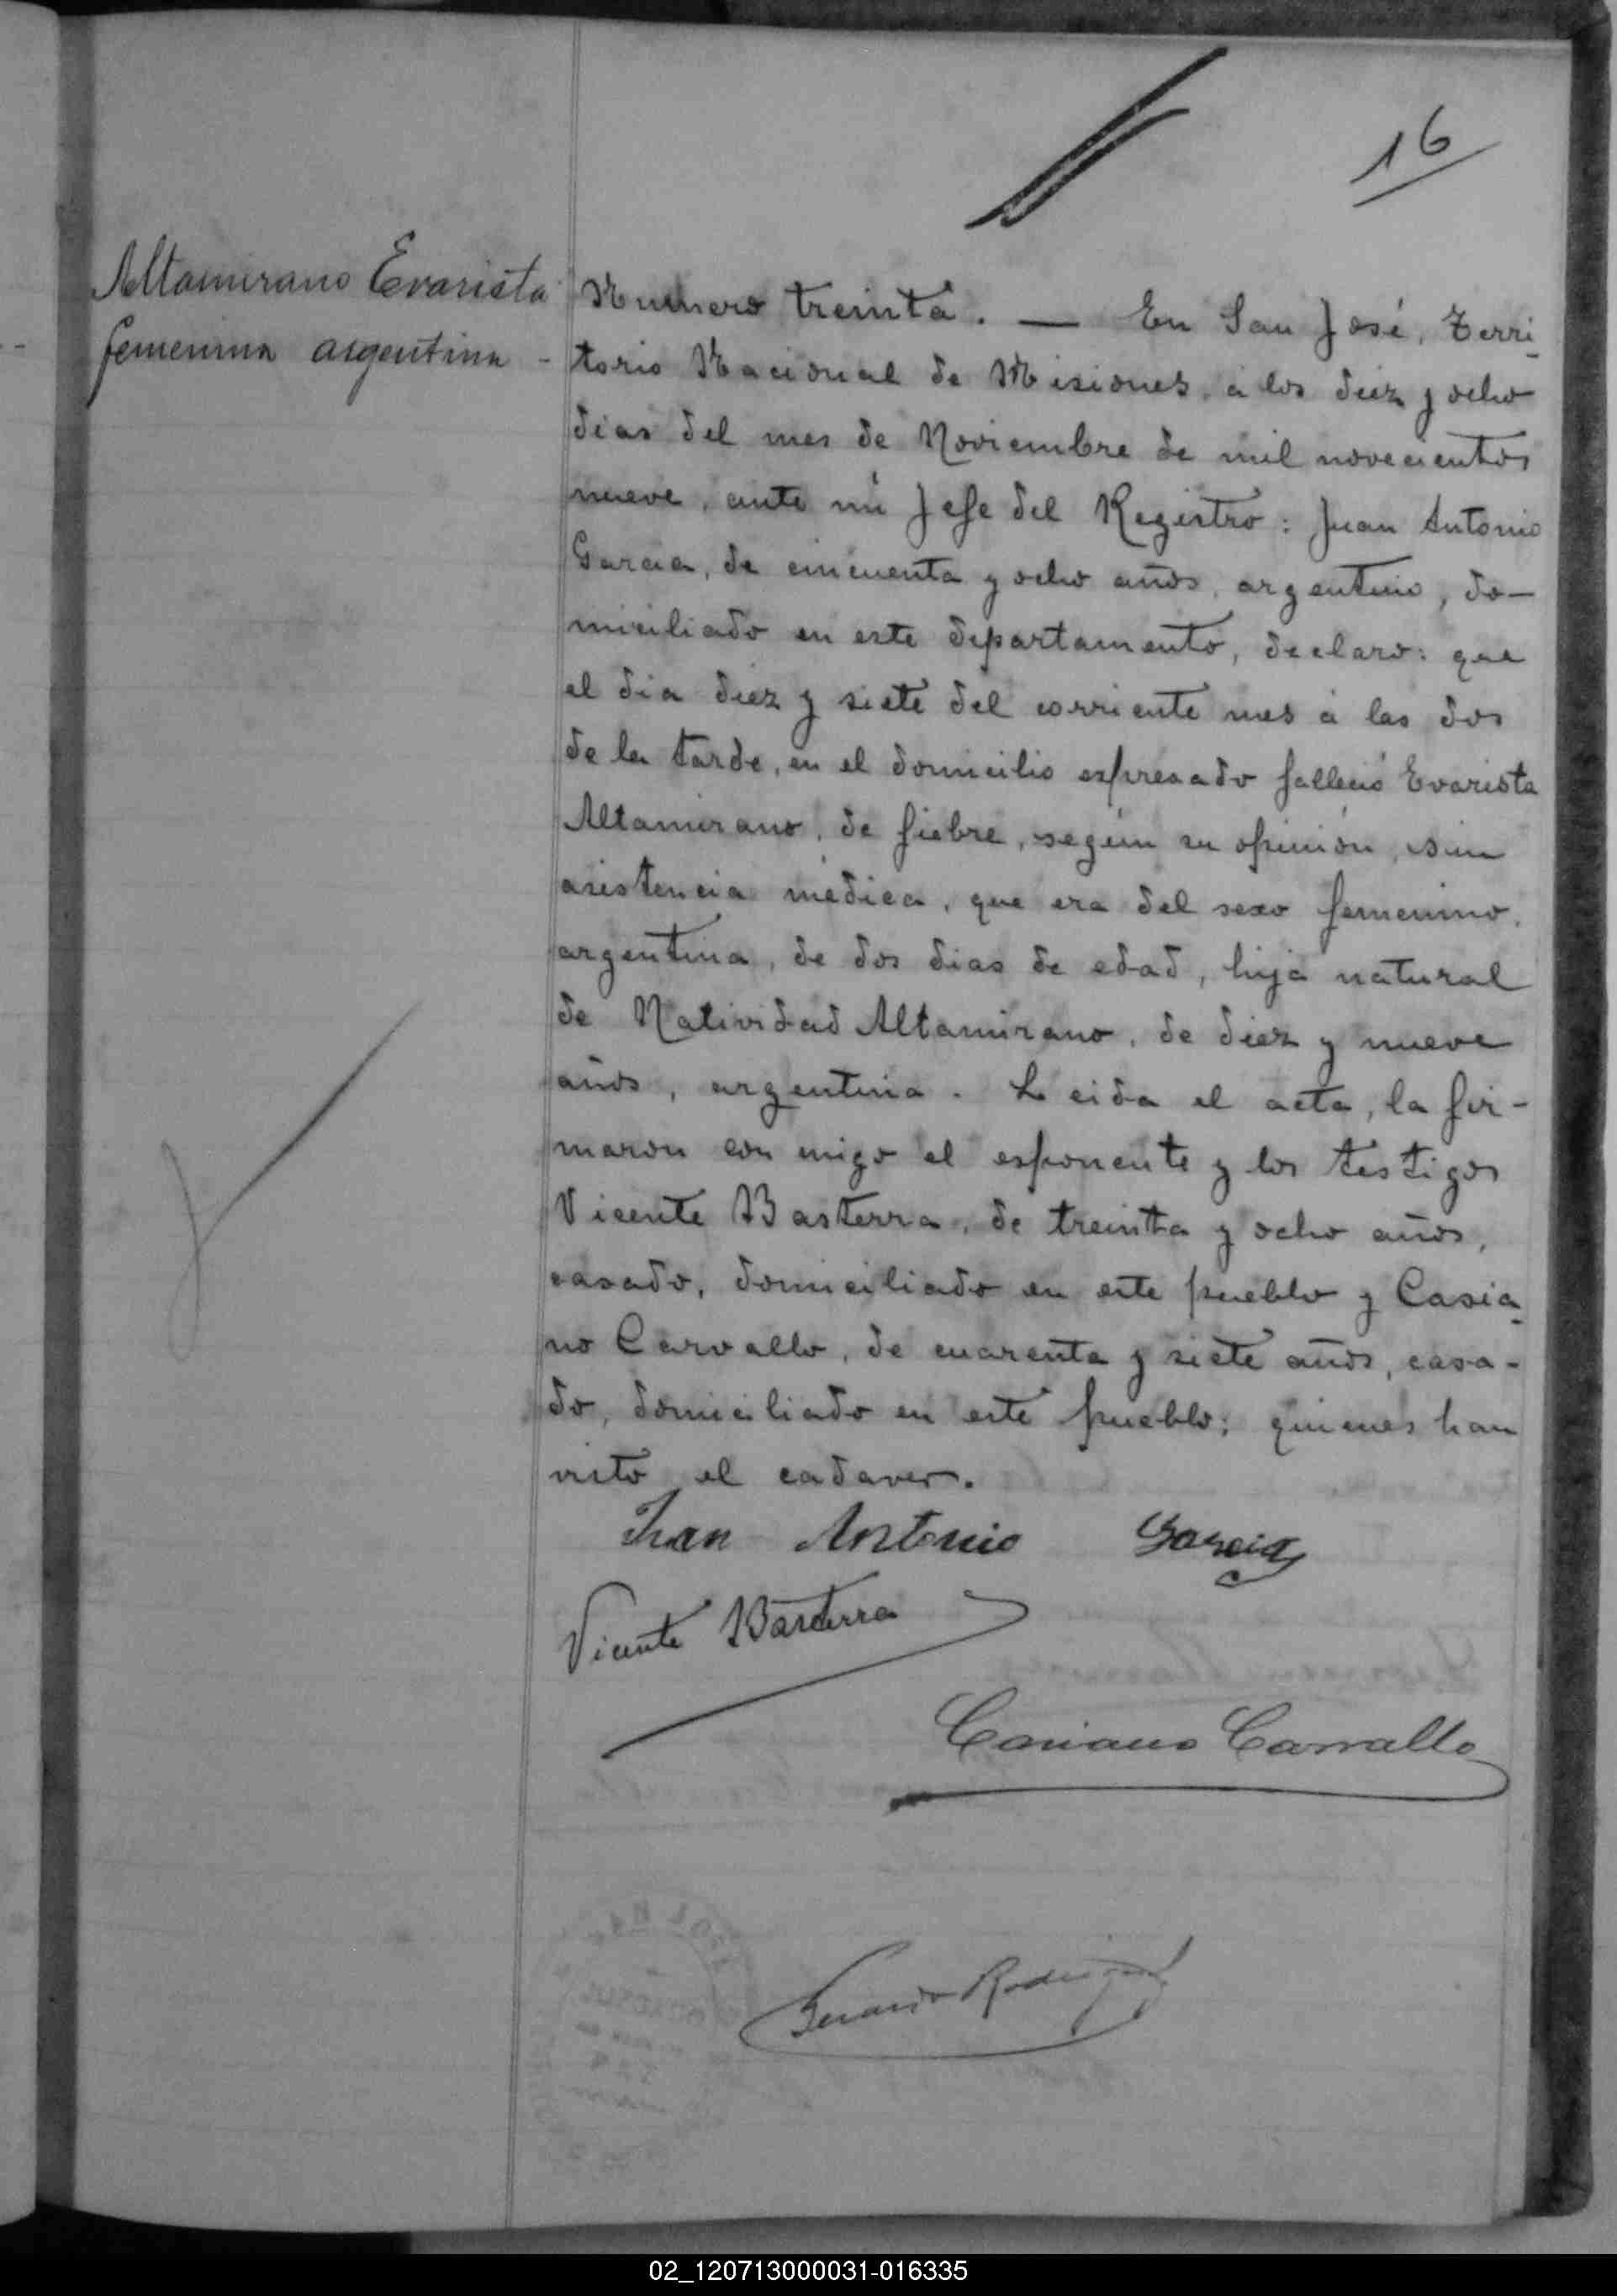 16
Altamirano Evarista
femenina argentina -
Numero treinta. — En San José, Terri-
torio Nacional de Misiones, á los diez y ocho
dias del mes de Noviembre de mil novecientos
nueve, ante mi Jefe del Registro: Juan Antonio
Garcia, de cincuenta y ocho años, argentino, do-
miciliado en este departamento, declaro: que
el dia diez y siete del corriente mes á las dos
de la tarde, en el domicilio espresado falleció Evarista
Altamirano, de fiebre, según su opinión, sin
asistencia médica, que era del sexo femenino,
argentina, de dos dias de edad, hija natural
de Natividad Altamirano, de diez y nueve
años, argentina. Leida el acta, la fir-
maron con migo el esponente y los testigos
Vicente Basterra, de treintta y ocho años,
casado, domiciliado en este pueblo y Casia-
no Carvallo, de cuarenta y siete años, casa-
do, domiciliado en este pueblo; quienes han
visto el cadaver.
Juan Antonio Garcia
Vicente Basterra
Casiano Carvallo
Rodriguez
02_120713000031-016335